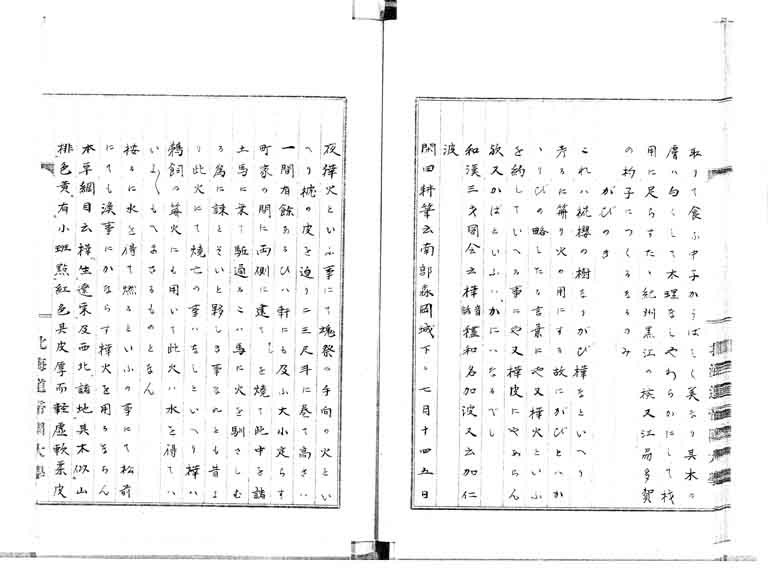 取りて食ふ中子かうばしく美なり其木は
膚は白くして木理なしやわらかにして材
用に足らすたゝ紀州黒江の挨又江州多賀
の杓子につくるなるのみ
かびのき
これハ桃櫻の樹なりかび樺なといへり
考るに篝り火の用にする故にかびとハか
ゝりびの略したる言葉にや又樺火といふ
を約していへる事にや又樺皮にやあらん
欤又かばといふハかにハなるべし
和漢三才図会云樺音話種和名加波又云加仁
波
閑田耕筆云南部森岡城下ハ七月十四五日
夜樺火といふ事にて魂祭の手向の火とい
へり桃の皮を迫り二三尺斗に巻て高さハ
一間有餘あるひハ軒にも及ふ大小定らす
町家の間に両側に建て しを焼て此中を諸
士馬に乗て駈過るこハ馬に火を馴さしむ
る為に課とそいと野しき事なれとも昔よ
り此火にて焼亡の事ハなしといへり樺ハ
鵜飼の篝火にも用いて此火ハ水を得てハ
いよ〱もへまさるものとなん
按るに水を得て燃るといふの事にて松前
にても漁事にかならす樺火を用るならん
本草綱目云樺生遼東及西北諸地其木似山
桃色黄有小斑點紅色其皮厚而軽虚軟柔皮
北海道帝國大學